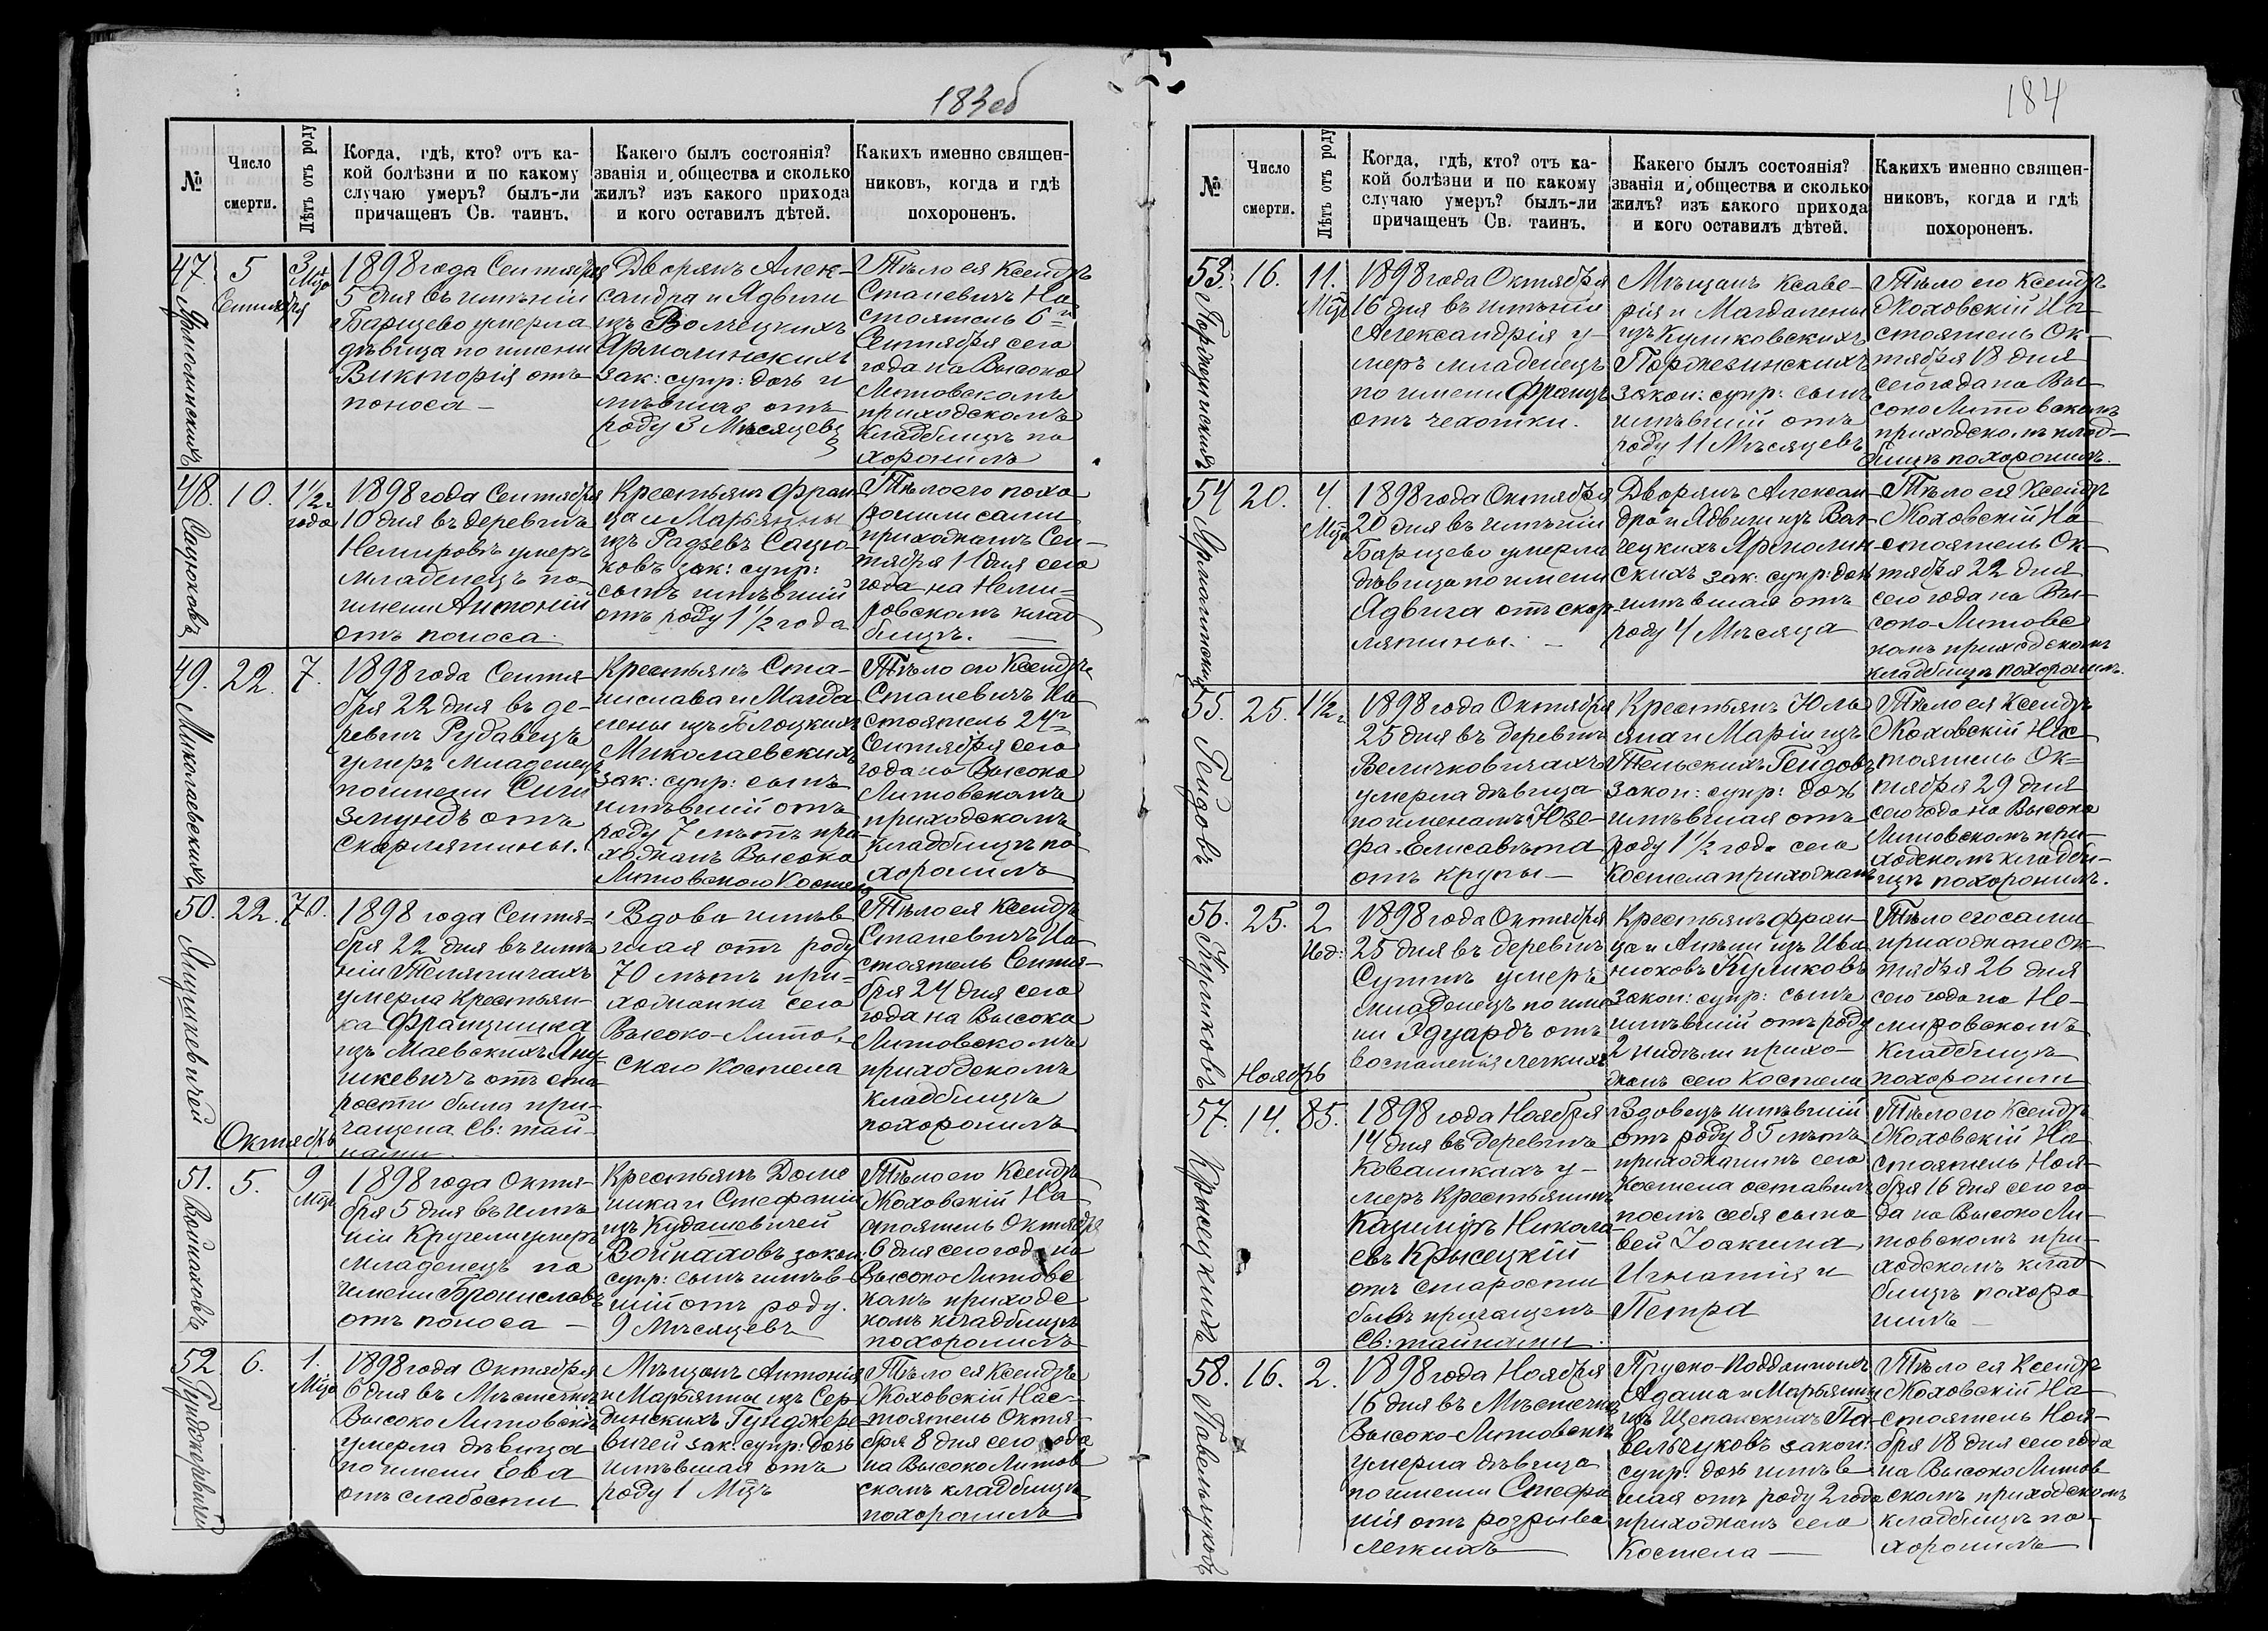 183об
№
Число
смерти.
Лѣтъ отъ роду
Когда, гдѣ, кто? отъ ка-
кой болѣзни и по какому
случаю умеръ? былъ-ли
причащенъ Св. таинъ.
Какего былъ состоянія?
званія и общества и сколько
жилъ? изъ какого прихода
и кого оставилъ дѣтей.
Какихъ именно священ-
никовъ, когда и гдѣ
похороненъ.
47.
Ярмолинскихъ
5
Сентября
3
Мца
1898 года Сентября
5 дня въ имѣніи
Барщево умерла
дѣвица по имени
Викторія отъ
поноса —
Дворянъ Алек-
сандра и Ядвиги
изъ Волчецкихъ
Ярмолинскихъ
зак: супр: дочь и
мѣвшая отъ
роду 3 Мѣсяцевъ
Тѣло ея Ксендзъ
Станевичъ На-
стоятель 6го
Сентября сего
года на Высоко
Литовскомъ
приходскомъ
кладбищѣ по
хоронилъ
48.
Сацюковъ
10.
1½
года
1898 года Сентября
10 дня въ деревнѣ
Немировѣ умеръ
младенецъ по
имени Антоній
отъ поноса.
Крестьянъ Фран
ца и Марьянны
изъ Радзевъ Сацю-
ковъ зак: супр:
сынъ имѣвшій
отъ роду 1½ года
Тѣло его похо
ронили сами
прихожане Сен-
тября 11 дня сего
года на Неми-
ровскомъ клад
бищѣ. —
49.
Миколаевскихъ
22.
7.
1898 года Сентя-
бря 22 дня въ де-
ревнѣ Рудавецъ
умеръ младенецъ
по имени Сиги
змундъ отъ
скарлятины.
Крестьянъ Ста-
нислава и Магда
лены изъ Блоцкихъ
Миколаевскихъ
зак: супр: сынъ
имѣвшій отъ
роду 7 лѣтъ при-
хожанъ Высоко
Литовского Костела
Тѣло его Ксендзъ
Станевичъ На
стоятель 24го
Сентября сего
года на Высоко
Литовскомъ
приходскомъ
кладбищѣ по
хоронилъ
50.
Янушкевичей
22.
70.
1898 года Сентя-
бря 22 дня въ имѣ
ніи Телятичахъ
умерла Крестьян-
ка Францишка
изъ Маевскихъ Яну
шкевичъ отъ ста
рости была при-
чащена Св: тай-
нами.
Вдова имѣв
шая отъ роду
70 лѣтъ при-
хожанка сего
Высоко-Литов-
скаго Костела
Тѣло ея Ксендзъ
Станевичъ На
стоятель Сентя-
бря 24 дня сего
года на Высоко
Литовскомъ
приходскомъ
кладбищѣ
похоронилъ
Октябрь
51.
Войнаховъ
5.
9
Мцв
1898 года Октя-
бря 5 дня въ имѣ
ніи Кругели умеръ
младенецъ по
имени Брониславъ
отъ поноса —
Крестьянъ Доми
ника и Стефаніи
изъ Кудашевичей
Войнаховъ закон:
супр: сынъ имѣв-
шій отъ роду.
9 Мѣсяцевъ
Тѣло его Ксендзъ
Жоховскій На
стоятель Октября
6 дня сего года на
Высоко Литовс
комъ приходс
комъ кладбищѣ
похоронилъ
52
6.
1.
Мца
1898 года Октября
6 дня въ Мѣстечкѣ
Высоко Литовскѣ
умерла дѣвица
по имени Ева
отъ слабости
Мѣщанъ Антонія
и Марьянны изъ Сер-
динскихъ Гунджере-
вичей зак: супр: дочь
имѣвшая отъ
роду 1 Мцъ
Тѣло ея Ксендзъ
Жоховскій Нас-
тоятель Октя-
бря 8 дня сего года
на Высоко Литов
скомъ кладбищѣ
похоронилъ
184
№
Число
смерти.
Лѣтъ отъ роду
Когда, гдѣ, кто? отъ ка-
кой болѣзни и по какому
случаю умеръ? былъ-ли
причащенъ Св. таинъ.
Какего былъ состоянія?
званія и общества и сколько
жилъ? изъ какого прихода
и кого оставилъ дѣтей.
Какихъ именно священ-
никовъ, когда и гдѣ
похороненъ.
53.
Порджезинскихъ
16.
11.
Мцв
1898 года Октября
16 дня въ имѣніи
Александрія у-
меръ младенецъ
по имени Францъ
отъ чехотки.
Мѣщанъ Ксаве-
рія и Магдалены
изъ Куликовскихъ
Порджезинскихъ
закон: супр: сынъ
имѣвшій отъ
роду 11 Мѣсяцевъ
Тѣло его Ксендзъ
Жоховскій На-
стоятель Ок-
тября 18 дня
сего года на Вы-
соко Литовскомъ
приходскомъ клад-
бищѣ похоронилъ.
54
Ярмолинскихъ
20.
4.
Мца
1898 года Октября
20 дня въ имѣніи
Барщево умерла
дѣвица по имени
Ядвига отъ скар-
лятины. —
Дворянъ Алексан-
дра и Ядвиги изъ Вол-
чецкихъ Ярмолин-
скихъ зак: супр: дочь
имѣвшая отъ
роду 4 Мѣсяца
Тѣло ея Ксендзъ
Жоховскій На
стоятель Ок-
тября 22 дня
сего года на Вы-
соко-Литовс
комъ приходскомъ
кладбищѣ похоронилъ.
55.
Гейдовъ
25.
1½ г
1898 года Октября
25 дня въ деревнѣ
Величковичахъ
умерла дѣвица
по именамъ Юзе-
фа-Елисавѣта
отъ крупы —
Крестьянъ Юль
яна и Маріи изъ
Тельскихъ Гейдовъ
закон: супр: дочь
имѣвшая отъ
роду 1½ года сего
Костела прихожанъ
Тѣло ея Ксендзъ
Жоховскій Нас
тоятель Ок-
тября 29 дня
сего года на Высоко
Литовскомъ при-
ходскомъ кладби-
щѣ похоронилъ.
56.
Куликовъ
25.
2
Нед:
1898 года Октября
25 дня въ деревнѣ
Сутнѣ умеръ
младенецъ по име
ни Эдуардъ отъ
воспаленія легкихъ
Крестьянъ Фран
ца и Анны изъ Ива
нюковъ Куликовъ
закон: супр: сынъ
имѣвшій отъ роду
2 нидѣли прихо-
жанъ сего Костела
Тѣло его сами
прихожане Ок-
тября 26 дня
сего года на Не-
мировскомъ
кладбищѣ
похоронили
Ноябрь
57.
14.
85.
1898 года Ноября
14 дня въ деревнѣ
Коваликахъ у-
меръ Крестьянинъ
Казиміръ Никола
евъ Крысецкій
отъ старости
бывъ причащенъ
Св: тайнами.
Вдовецъ имѣвшій
отъ роду 85 лѣтъ
прихожанинъ сего
Костела оставилъ
послѣ себя сыно
вей Іоакима,
Игнатія и
Петра
Тѣло его Ксендзъ
Жоховскій На
стоятель Ноя-
бря 16 дня сего го
да на Высоко Ли-
товскомъ при-
ходскомъ клад
бищѣ похоро
нилъ —
58.
Павельчуковъ
16.
2.
1898 года Ноября
16 дня въ Мѣстечкѣ
Высоко-Литовскѣ
умерла дѣвица
по имени Стефа
нія отъ розрыва
легкихъ —
Пруско-Подданныхъ
Адама и Марьянны
изъ Щепанскихъ Па-
вельчуковъ закон:
супр: дочь имѣв
шая отъ роду 2 года
прихожанъ сего
Костела —
Тѣло ея Ксендзъ
Жоховскій На-
стоятель Ноя-
бря 18 дня сего года
на Высоко Литов
скомъ приходскомъ
кладбищѣ по-
хоронилъ